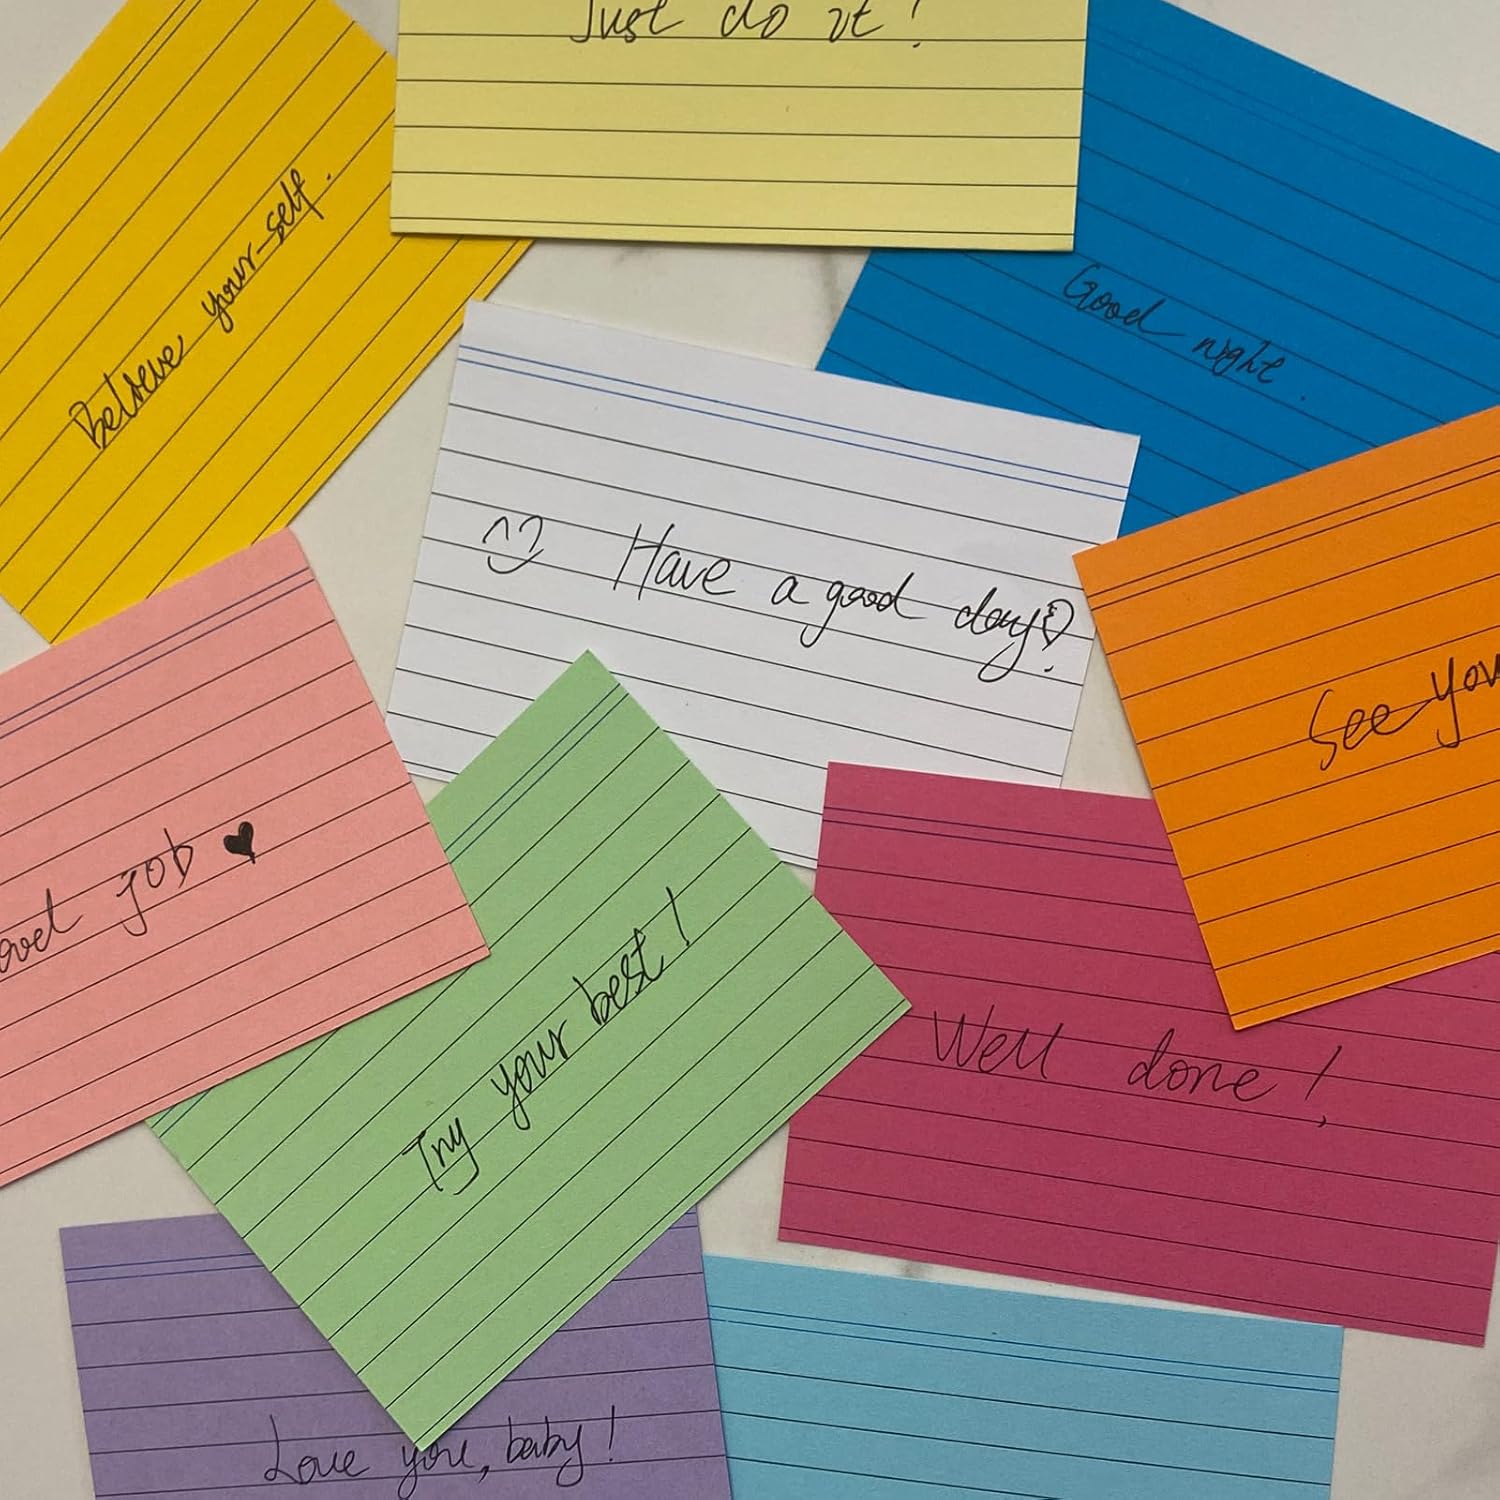 Just do it!
Believe your-self.
Good night.
Have a good day!
See you
ood job
Try your best!
Well done!
Love you, baby!